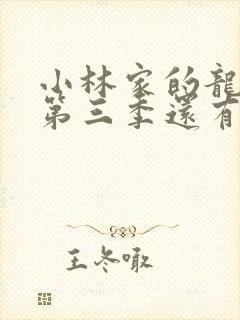 小林家的龍
第三季還有
王冬噉